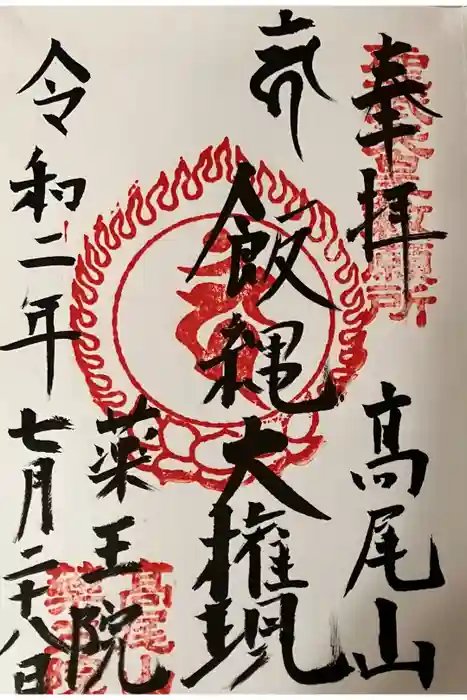 奉拝
髙尾山
飯縄大権現
薬王院
令和二年七月二十八日